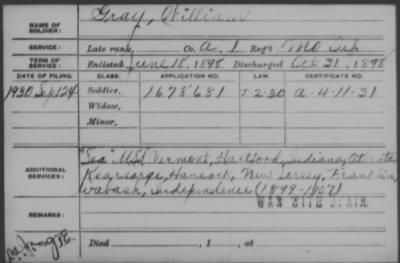 NAME OF SOLDIER: Gray, William
SERVICE: Late rank, Co. A, 1 Reg't Mo Inf
TERM OF SERVICE: Enlisted June 18, 1898 Discharged Oct 31, 1898
DATE OF FILING. CLASS. APPLICATION NO. LAW. CERTIFICATE NO.
1930 Sep 24 Soldier, 1678681 7-2-30 A-4-11-31
Widow,
Minor,
"Sea" USS Vermont, Hartford, Indiana, Atlanta
ADDITIONAL SERVICES: Kearsarge, Hancock, New Jersey, Franklin,
Wabash, Independence (1899-1907)
WAR WITH SPAIN
REMARKS:
Died , 1 , at